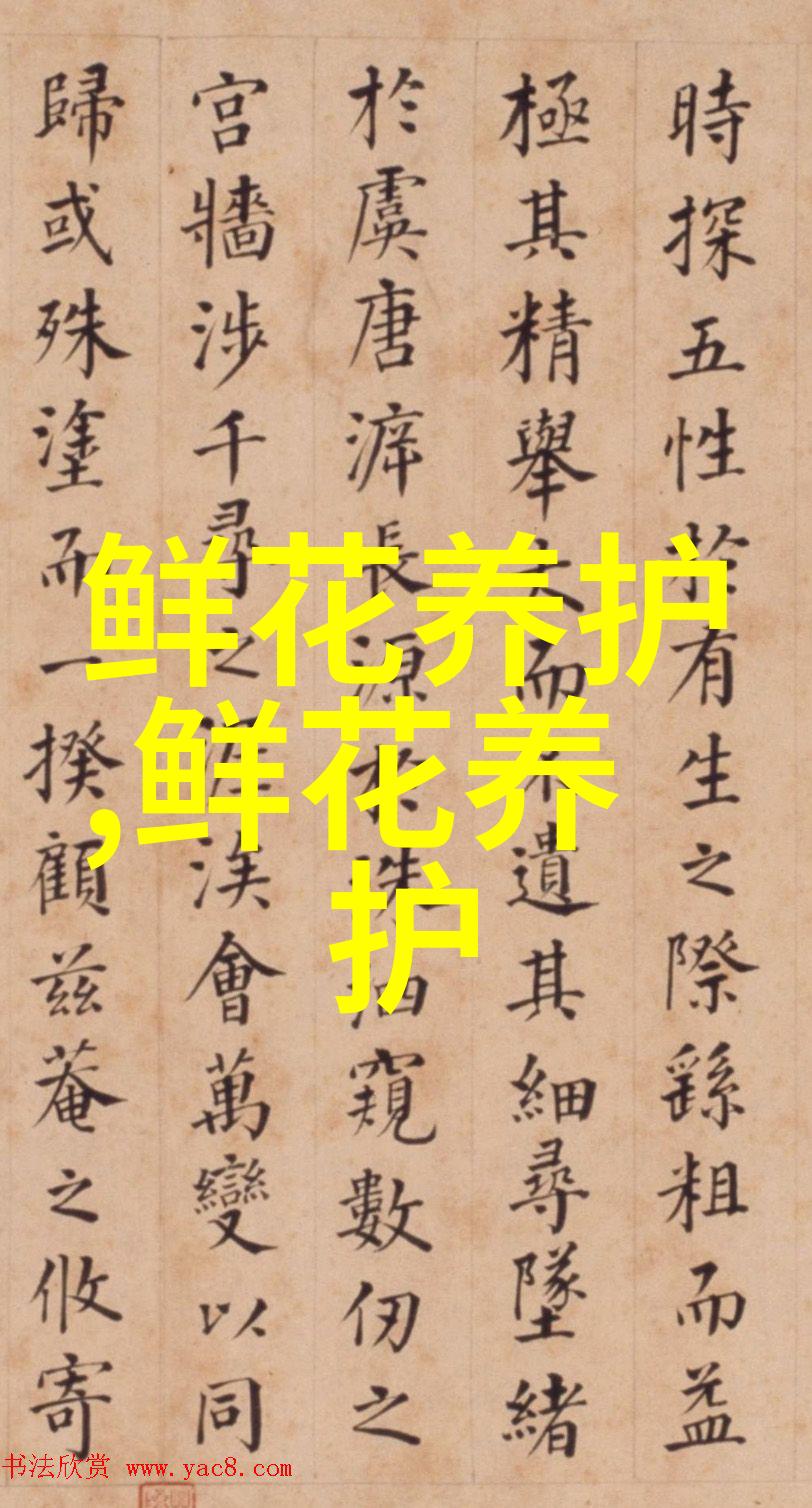 時探五性於有生之際繇粗而益
極其精舉大而不遺其細尋墜緒
於虞唐滸長源於洙泗窺數仞之
宮牆涉千尋之涯涘會萬變以同
歸或殊塗而一揆顧茲菴之攸寄
鲜花养护
,鲜花养
护
书法欣赏 www.yac8.com